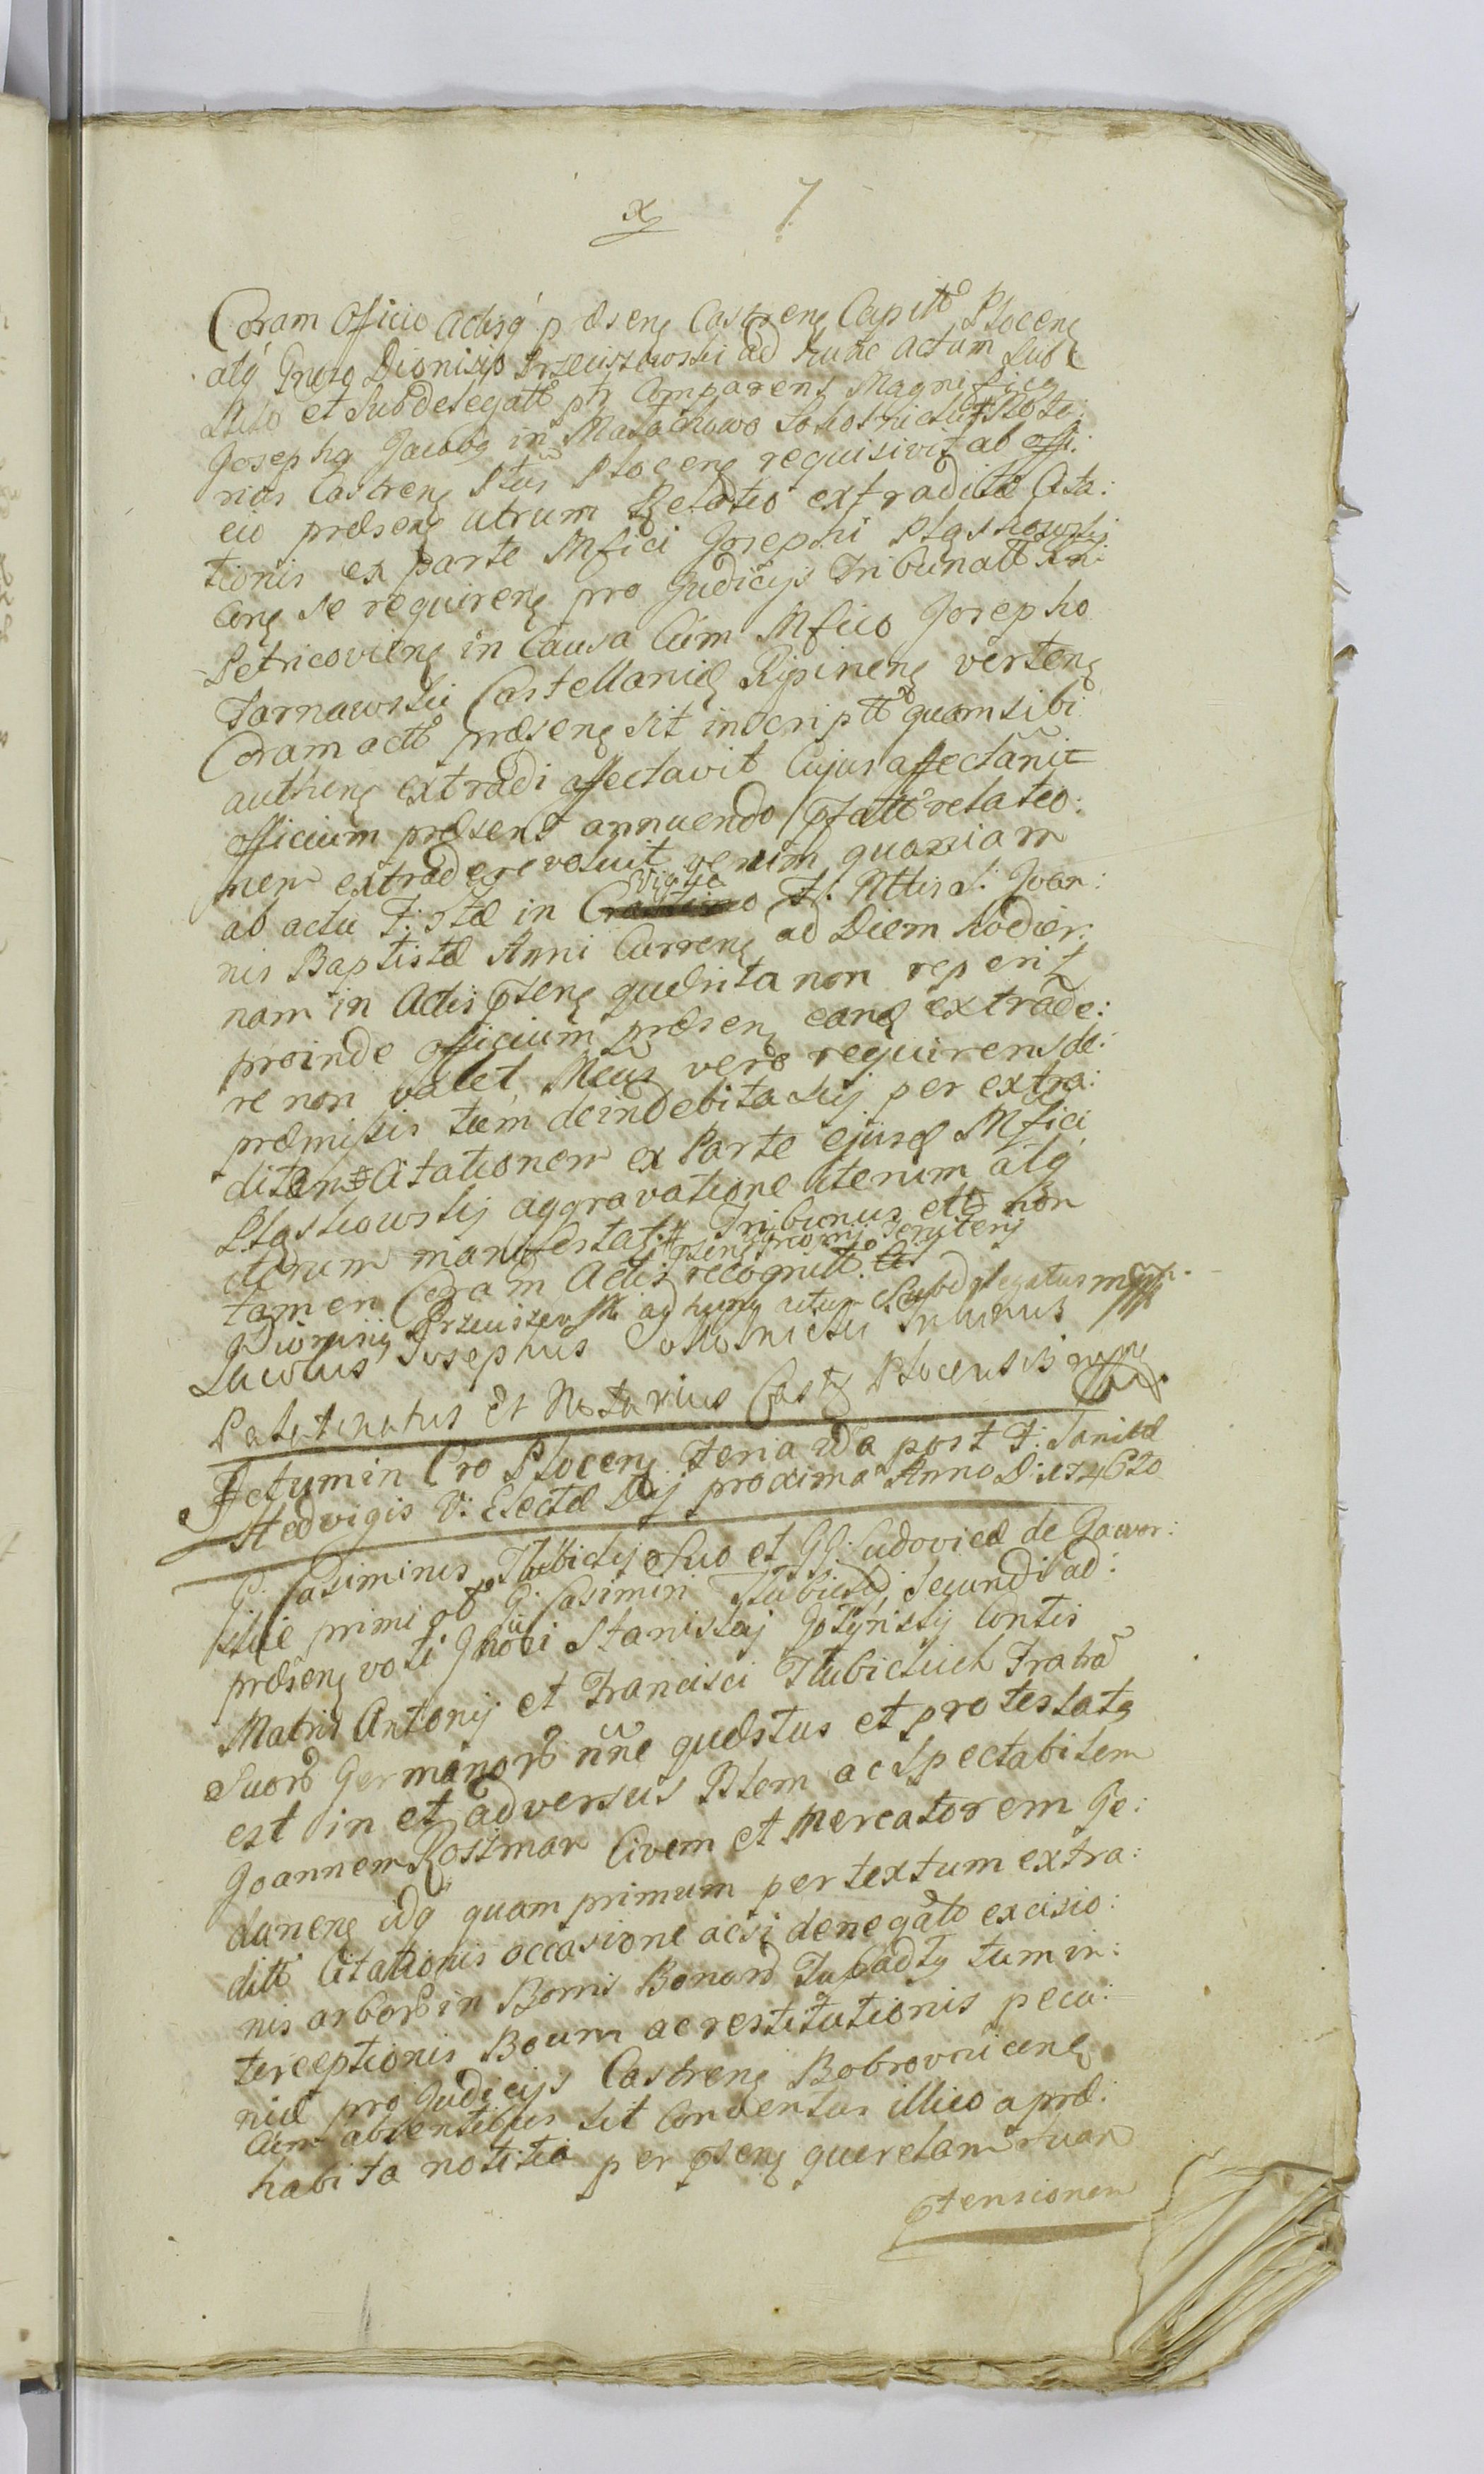 x 7
Coram Officio Actisq́ præseng Castreng Capitt Ploceng
atq́ Gnoso Dionisio Przeciszowski ad hunc actum Sub
et Subdelegatt ptr Comparens Magnificg
Josephg Jacobg in Małachowo Sokolnicki Nota:
rius Castreng Ploceng requisivit ab offi:
cio præseng utrum Relatio extraditæ Cita:
tionis ex parte Mfici Josephi Plaskowskij
Cong se requireng pro Judicijs Tribunatt Rni
Petricovieng in Causa Cum Mfico Josepho
Tarnawski Castellanid Rypineng verteng
Coram actt præseng sit inscriptt quam sibi
autheng extradi affectavit Cujus affectãni
officium præsens annuendo pfatt relatio:
nem extradere voluit verum quoniam
ab actu F: Stæ in Crastino Vigilia F: Nttis S: Joan:
nis Baptistæ Anni Curreng ad Diem hodier:
nam in Actis pseng quæsita non reperit
proinde officium præseng eand extrade:
re non valet, Mcus vero requirens de
præmissis tum de indebita sui per extra:
ditam Citationem ex Parte ejusd Mfici
Plaskowskij aggravatione iterum atq́
iterum manifestat: Tribunus ettc non
tamen Coram Actis recognitt.
Dionisig Przeciszewski ad hunc actum Subdelegatus mpp.
Jacobus Josephus Sokolnicki Tribunus
Palatinatus et Notarius Castg Plocensis mpp
Actum in Cro Ploceng Feria IIda post F: Sanctæ
Hedvigis V: Electæ Dej proxima Anno D: 1746to
G. Casimirus Tłubicki Suo et GG: Ludovicæ de Gawor:
skie primi ac G: Casimiri Tłubicki Secundi ad:
præseng voti Stanislaj Gotyńskij Contis
Matris Antonij et Francisci Tłubickich Fratrũ
Suord Germanord nñe quæstus et protestatg
est in et adversus Blem ac Spectabilem
Joannem Rosimar Civem et Mercatorem Ge:
daneng idq quam primum per textum extra:
ditt Citationis occasione acsi denegatt excisio:
nis arbord in Borris Bonord Tupadty tum in:
terceptionis Boum ac restitutionis pecu:
niæ pro Judicijs Castreng Bobrovniceng
Cum absentibus sit Conventus illico apræ:
habita notitia per pseng querelam suam
ptensionem